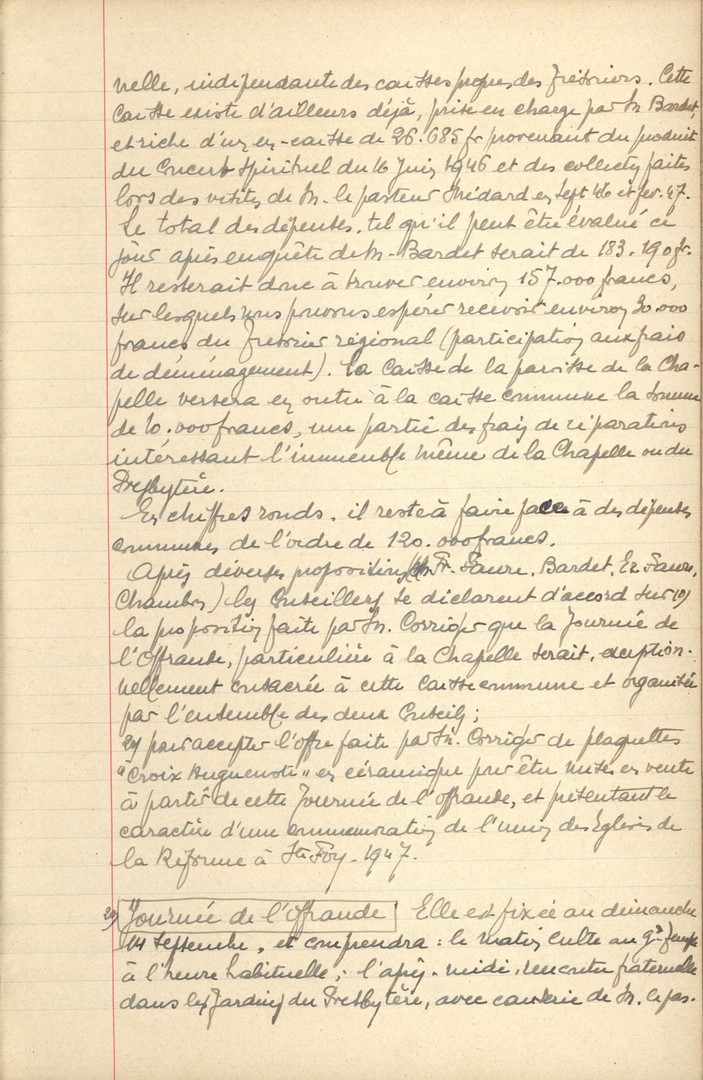 nelle, indépendante des caisses propres des Trésoriers. Cette
Caisse existe d'ailleurs déjà, prise en charge par M. Bardet,
et riche d'un en-caisse de 26.685 fr provenant du produit
du Concert Spirituel du 16 Juin 1946 et des collectes faites
lors des visites de M. le pasteur Médard en Sept 46 et fev. 47.
Le total des dépenses, tel qu'il peut être évalué ce
jour après enquête de M. Bardet serait de 183.190 fr.
Il resterait donc à trouver environ 157.000 francs,
sur lesquels nous pouvons espérer recevoir environ 30.000
francs du Trésorier régional (participation aux frais
de déménagement). La caisse de la paroisse de la Cha-
pelle versera en outre à la caisse commune la somme
de 10.000 francs, une partie des frais de réparations
intéressant l'immeuble même de la Chapelle ou du
Presbytère.
En chiffres ronds, il reste à faire face à des dépenses
communes de l'ordre de 120.000 francs.
Après diverses propositions (M. Fr. Faure, Bardet, Ez. Faure,
Chambon) les Conseillers se déclarent d'accord sur 1o)
la proposition faite par M. Corriger que la Journée de
l'Offrande, particulière à la Chapelle serait, exception-
nellement consacrée à cette Caisse commune et organisée
par l'ensemble des deux Conseils;
2o) pour accepter l'offre faite par M. Corriger de plaquettes
"Croix Huguenote" en céramique pour être mises en vente
à partir de cette Journée de l'offrande, et présentant le
caractère d'une commémoration de l'union des Eglises de
la Réforme à Ste Foy - 1947.
2o) Journée de l'Offrande Elle est fixée au dimanche
14 Septembre, et comprendra : le matin culte au gd Temple
à l'heure habituelle; l'après-midi, rencontre fraternelle
dans les Jardins du Presbytère, avec causerie de M. le pas-